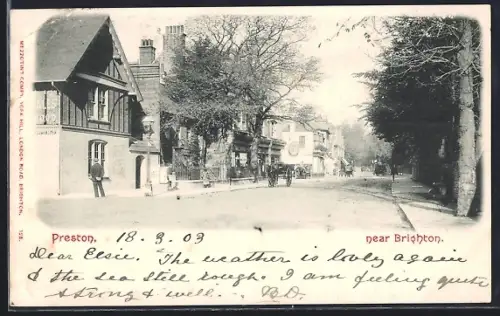 MEZZOTINT COMPY, YORK HILL, LONDON ROAD, BRIGHTON.
Preston. 18.9.03 near Brighton.
Dear Elsie. The weather is lovly again
& the sea still rough. I am feeling quite
strong & well.